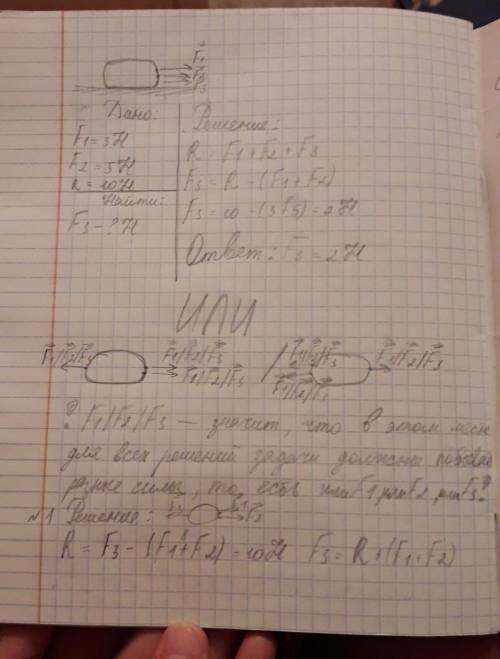 F₁
F₂
F₃
Дано:
F1 = 3Н
F2 = 5Н
R = 10Н
Найти:
F3 - ? Н
Решение:
R = F1 + F2 + F3
F3 = R - (F1 + F2)
F3 = 10 - (3+5) = 2Н
Ответ: F3 = 2Н
ИЛИ
F1/F2/F3 F1/F2/F3 F1/F2/F3
F1/F2/F3 F1/F2/F3 F1/F2/F3
? F1/F2/F3 — значит, что в этом месте
для всех решений задачи должны
разные силы, то есть или F1, или F2, или F3?
№1 Решение: F3
R = F3 - (F1 + F2) = 10Н F3 = R + (F1 + F2)